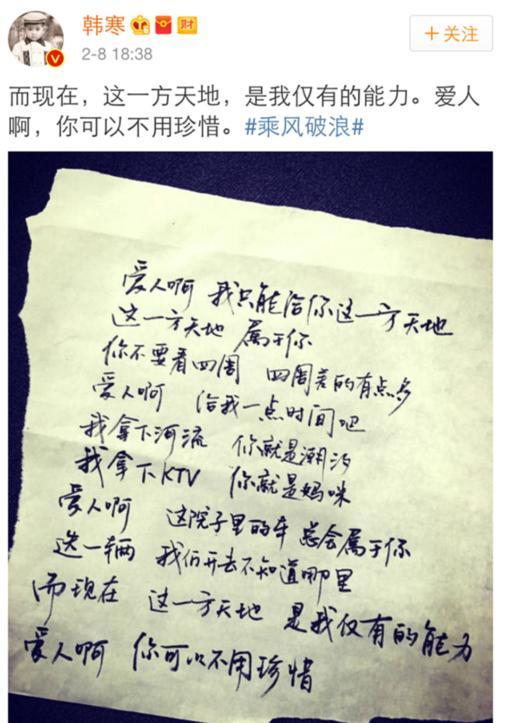 韩寒
财
+关注
2-8 18:38
而现在，这一方天地，是我仅有的能力。爱人
啊，你可以不用珍惜。#乘风破浪#
爱人啊 我只能给你这一方天地
这一方天地 属于你
你不要看四周 四周美的有点多
爱人啊 给我一点时间吧
我拿下河流 你就是潮汐
我拿下KTV 你就是妈咪
爱人啊 这院子里的车 总会属于你
选一辆 我们开去不知道哪里
而现在 这一方天地 是我仅有的能力
爱人啊 你可以不用珍惜